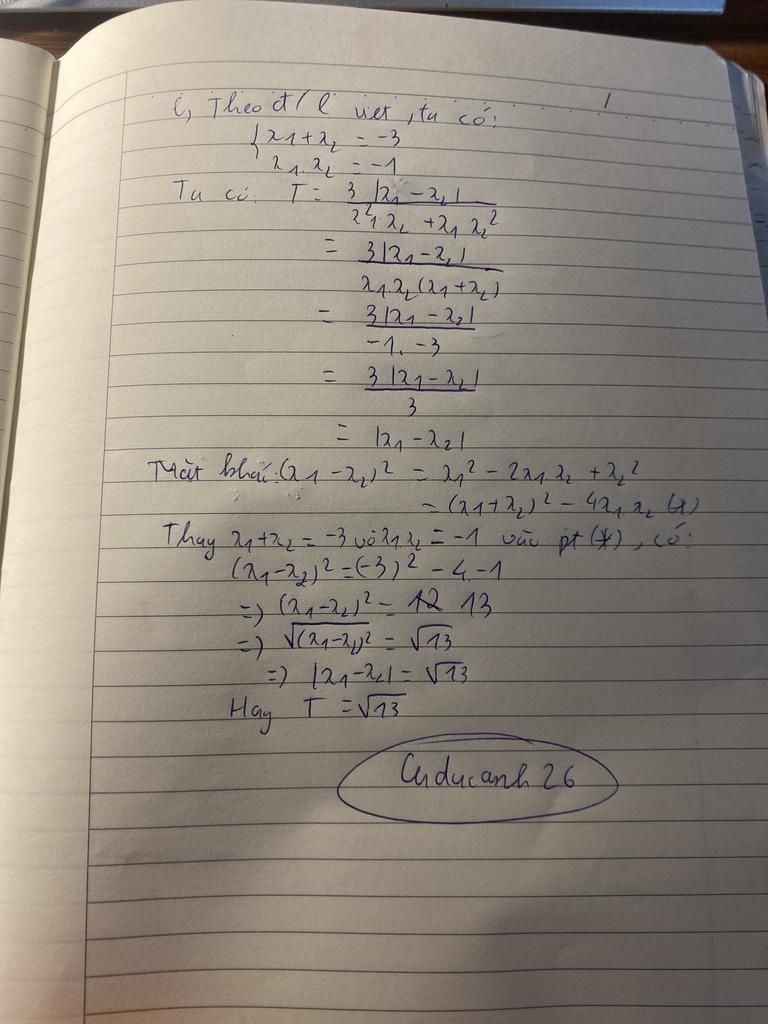 c, Theo đ/l viet, ta có:
{ x1 + x2 = -3
x1.x2 = -1
Ta có: T = 3|x1 - x2| / x1².x2 + x1.x2²
= 3|x1 - x2| / x1.x2(x1+x2)
= 3|x1 - x2| / -1. -3
= 3|x1 - x2| / 3
= |x1 - x2|
Mặt khác: (x1 - x2)² = x1² - 2x1x2 + x2²
= (x1+x2)² - 4x1x2 (*)
Thay x1+x2 = -3 và x1.x2 = -1 vào pt (*), có:
(x1-x2)² = (-3)² - 4.-1
=> (x1-x2)² = 13
=> √(x1-x2)² = √13
=> |x1-x2| = √13
Hay T = √13
Cuducanh26